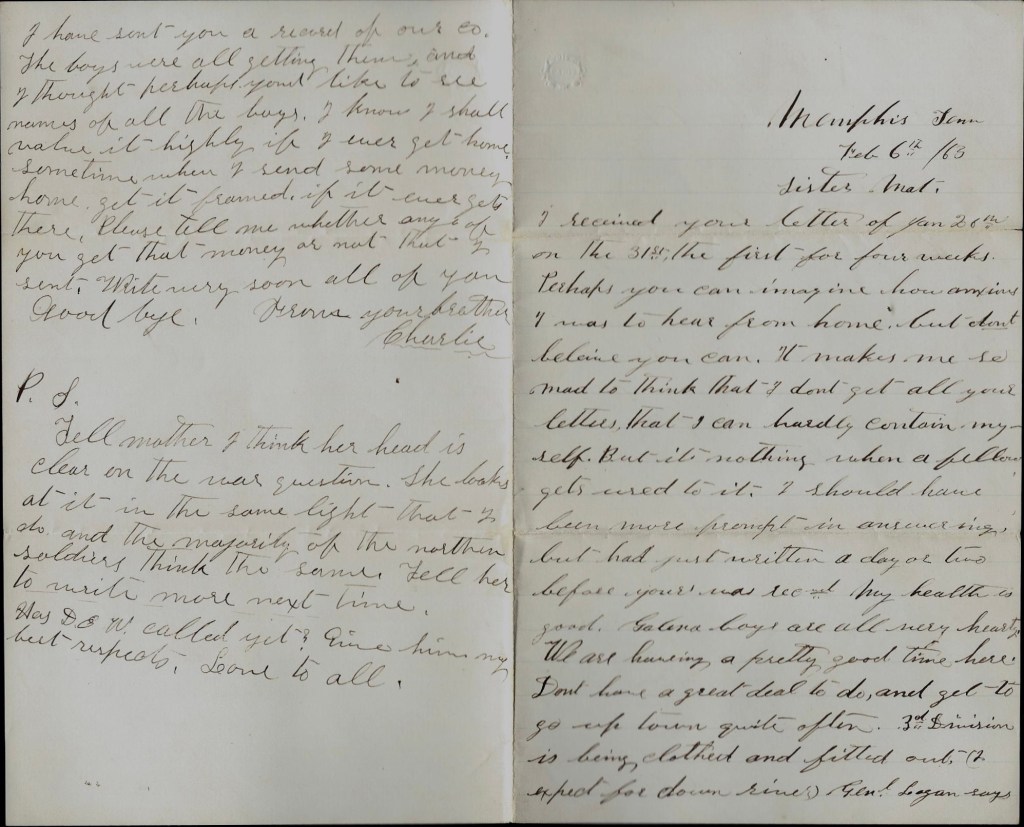 Memphis Tenn
Feb 6th /63
Sister Mat.
I received your letter of Jan 26th
on the 31st, the first for four weeks.
Perhaps you can imagine how anxious
I was to hear from home. but dont
beleive you can. It makes me so
mad to think that I dont get all your
letters, that I can hardly contain my-
self. But its nothing when a fellow
gets used to it. I should have
been more prompt in answering,
but had just written a day or two
before yours was recd. My health is
good. Galena boys are all very hearty.
We are having a pretty good time here.
Dont have a great deal to do, and get to
go up town quite often. 3rd Division
is being clothed and fitted out, (I
expect for down river) Genl. Logan says
I have sent you a record of our co.
The boys were all getting them, and
I thought perhaps youd like to see
names of all the boys. I know I shall
value it highly if I ever get home.
sometime when I send some money
home, get it framed, if it ever gets
there, Please tell me whether any of
you get that money or not that I
sent. Write very soon all of you
Good bye. From your brother
Charlie
P. S.
Tell mother I think her head is
clear on the war question. She looks
at it in the same light that I
do and the majority of the northern
soldiers think the same. Tell her
to write more next time.
Has De W. called yet? Give him my
best respects. Love to all.